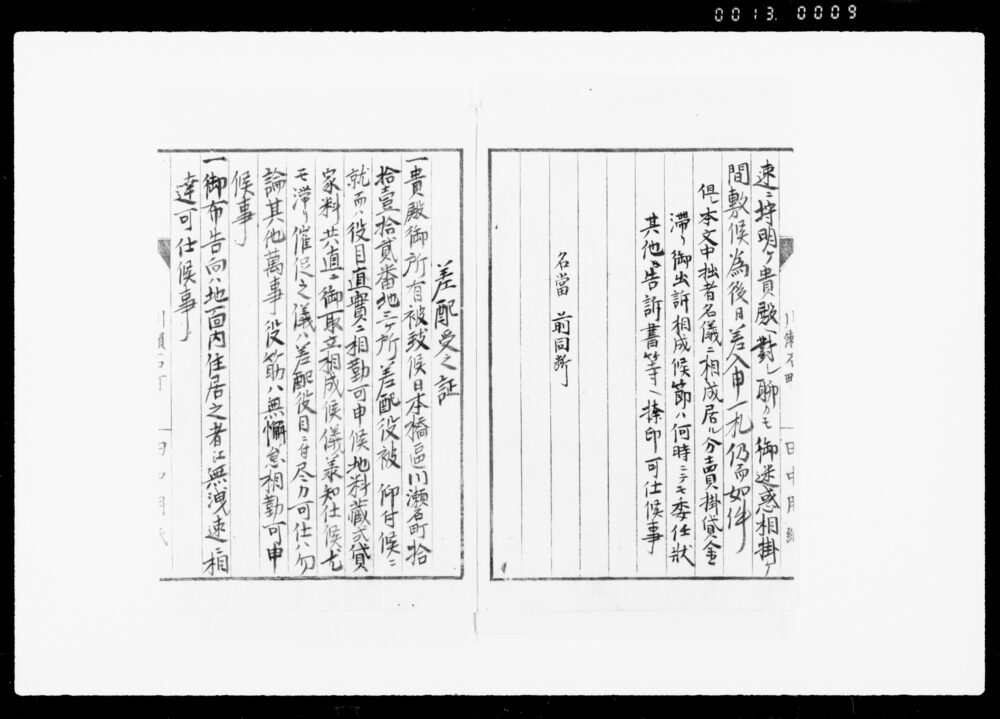 0013 0009
速ニ埒明ケ貴殿ヘ對シ聊カモ御迷惑相掛ケ
間敷候為後日差入申一札仍而如件
但本文中拙者名儀ニ相成居ル分賣掛貸金
滞リ御出訴相成候節ハ何時ニテモ委任状
其他告訴書等ヘ捺印可仕候事
名當 前同断
差配受之証
一貴殿御所有被致候日本橋區川瀬石町拾
拾壹拾貳番地三ケ所差配役被 仰付候ニ
就而ハ役目直實ニ相勤可申候地料藏敷貸
家料共直ニ御取立相成候儀承知仕候尤
モ滞リ催促之儀ハ差配役目ニ付尽力可仕ハ勿
論其他萬事役筋ハ無懈怠相勤可申
候事
一御布告向ハ地面内住居之者江無洩速ニ相
達可仕候事
川瀬石町
田中用紙